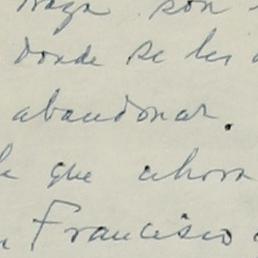 son
donde se les
abandonar.
que ahora
Francisco